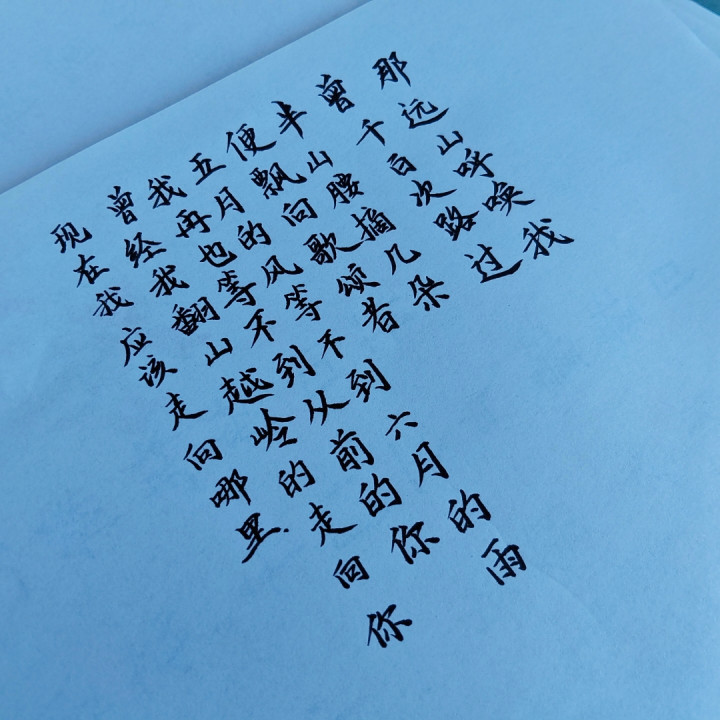 那远山呼唤我
曾千百次路过
半山腰摘几朵
便飘向歌颂着
五月的风等不到六月的雨
我再也等不到从前的你
曾经我翻山越岭的走向你
现在我应该走向哪里.